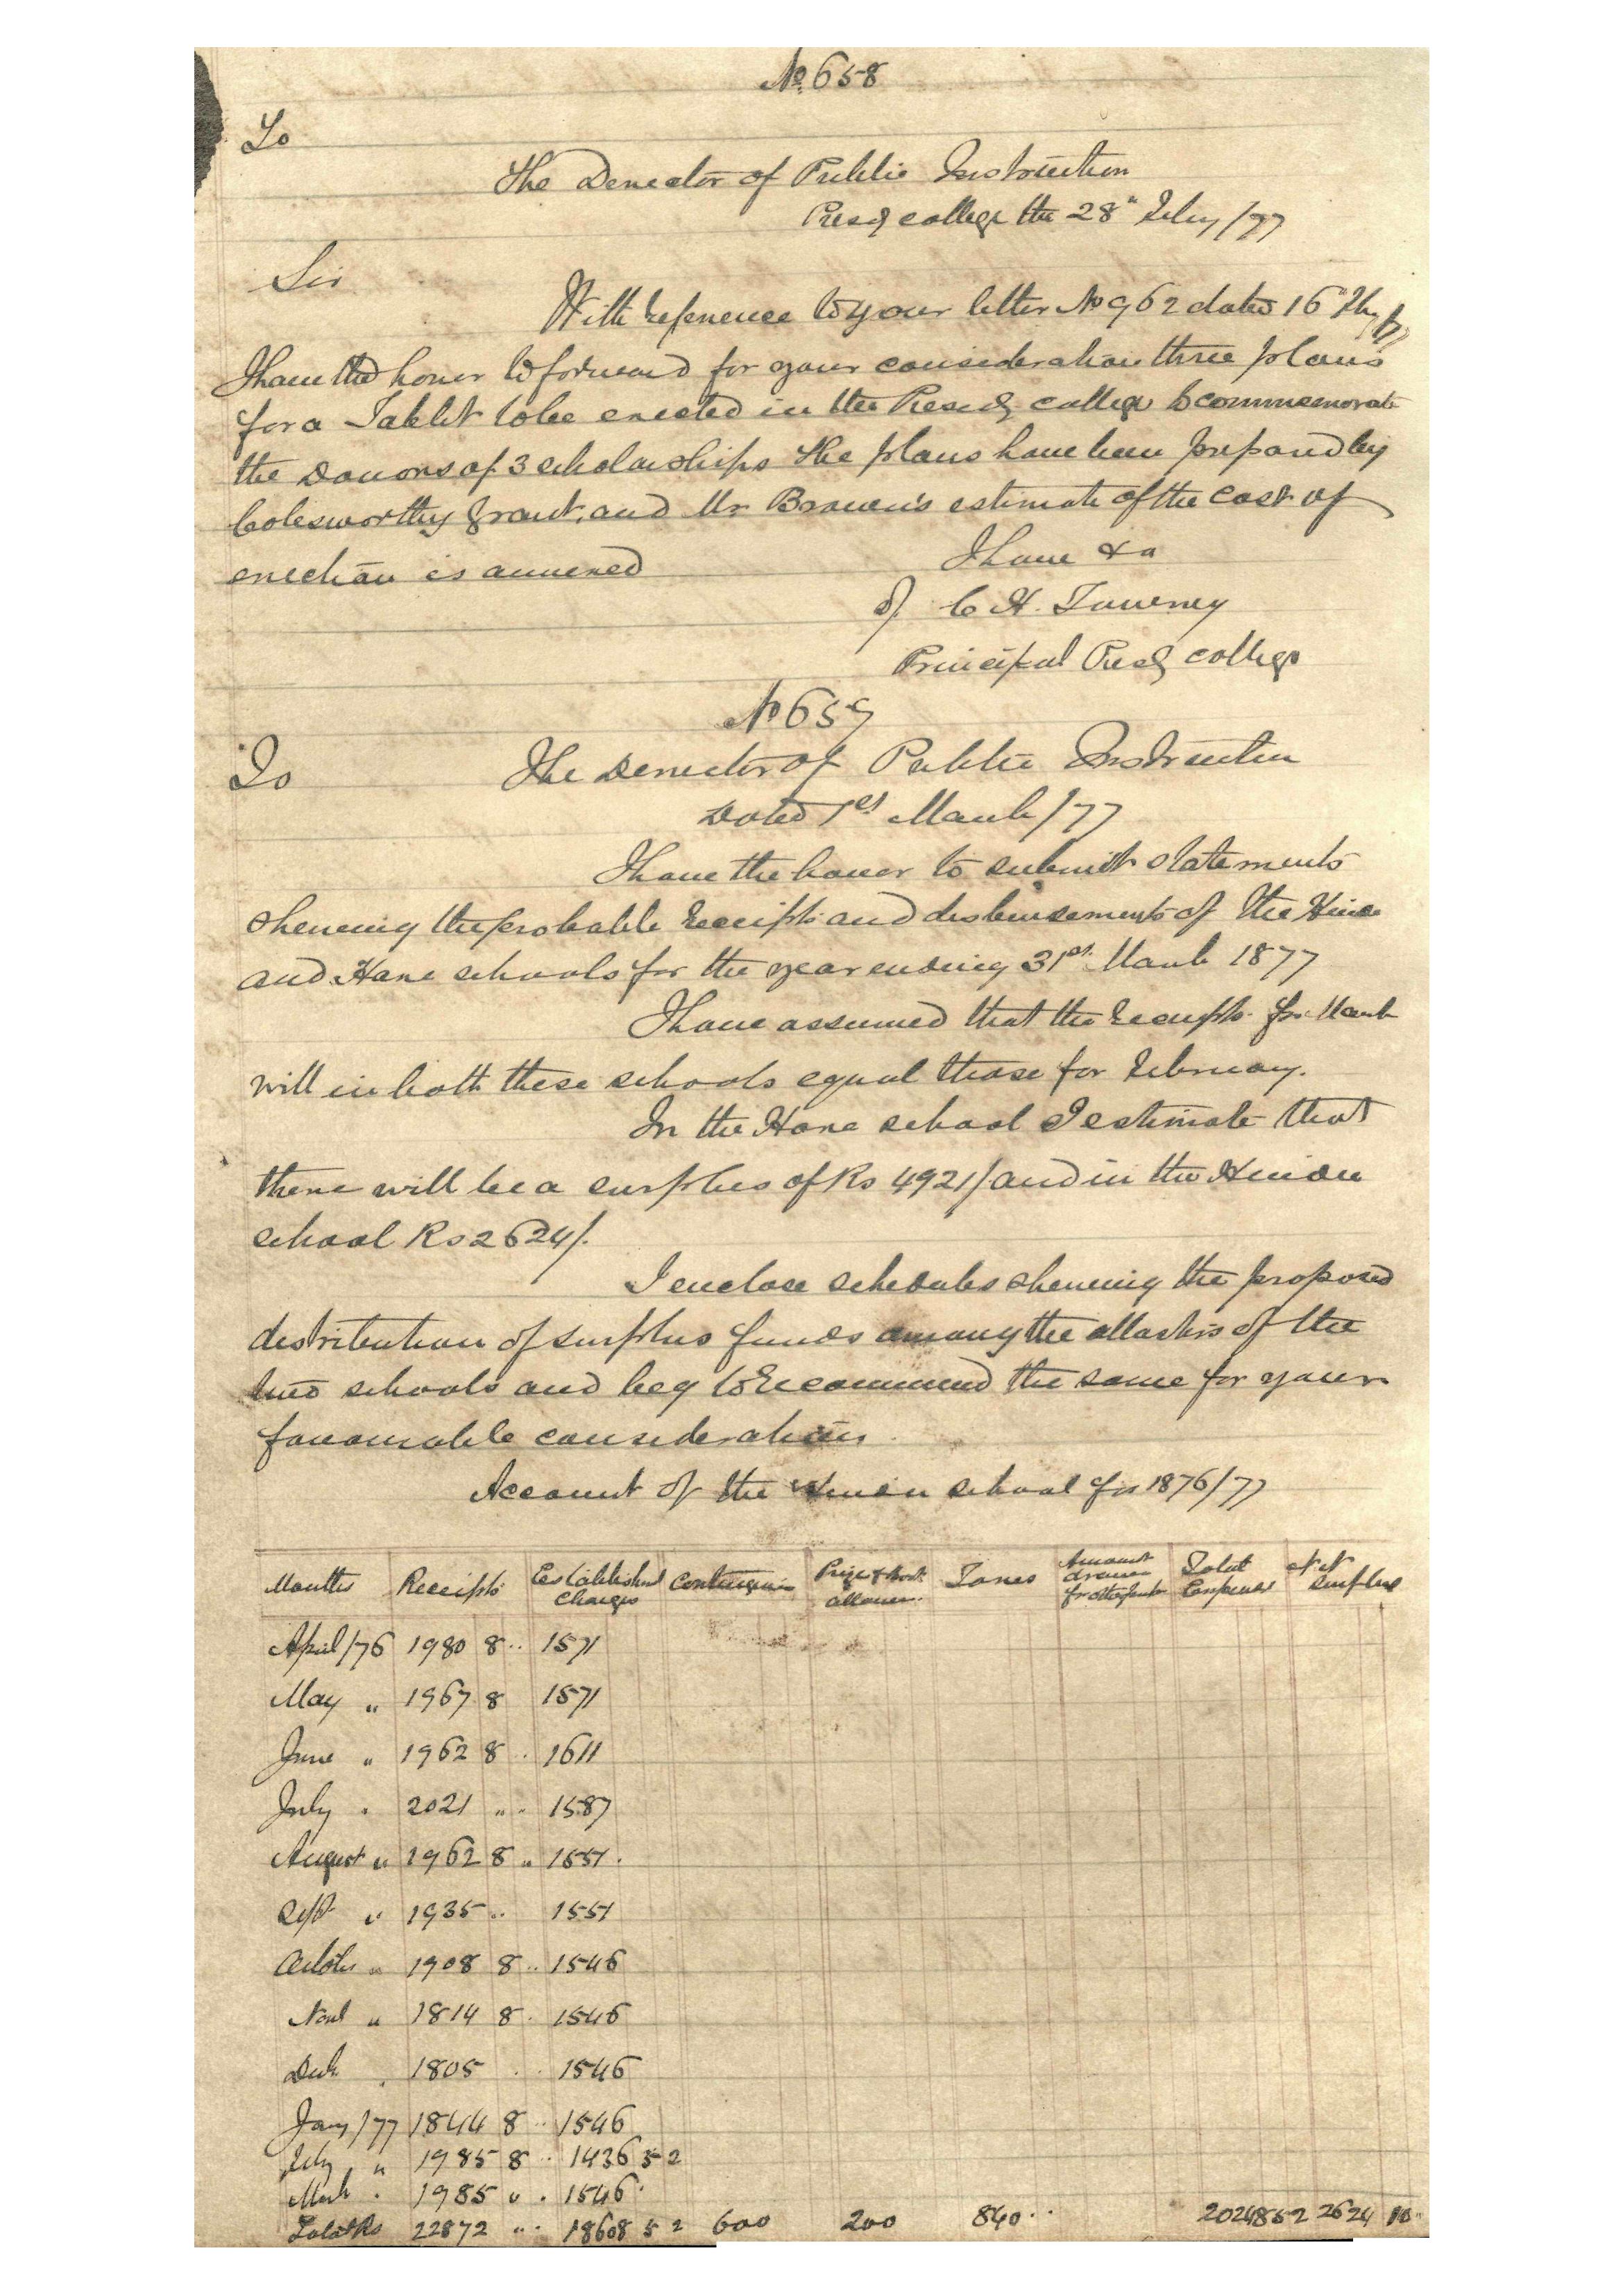 No 658
To
The Director of Public Instruction
Presy college the 28th Feby /77
Sir
With reference to your letter No 962 dated 16th Feby
I have the honor to forward for your consideration three plans
for a Tablet to be erected in the Presidy college to commemorate
the Donors of 3 scholarships The plans have been prepared by
Colesworthy Grant, and Mr Brown's estimate of the cost of
erection is annexed
I have &a
Sd C H. Tawney
Principal Presy college
No 659
To
The Director of Public Instruction
Dated 1st March /77
I have the honor to submit statements
shewing the probable Receipts and disbursements of the Hindu
and Hare schools for the year ending 31st March 1877
I have assumed that the Receipts for March
will in both these schools equal those for February.
In the Hare school I estimate that
there will be a surplus of Rs 4921/ and in the Hindu
school Rs 2624/.
I enclose schedules shewing the proposed
distribution of surplus funds among the Masters of the
two schools and beg to Recommend the same for your
favourable consideration
Account of the Hindu school for 1876/77
Months Receipts Established Charges Contingencies Prize & Book allowce. Taxes Amount drawn fr other funds Total Expenses Nett surplus
April /76 1980 8 .. 1571
May " 1967 8 1571
June " 1962 8 . 1611
July " 2021 " .. 1587
August " 1962 8 " 1551.
Sept " 1935 .. 1551
October " 1908 8 .. 1546
Novr " 1814 8 . 1546
Decr . 1805 . . 1546
Jany /77 1844 8 .. 1546
Feby " 1985 8 .. 1436 5 2
March . 1985 " . 1546
Total Rs 22872 " .. 18608 5 2 600 200 840 .. 20248 5 2 2624 10